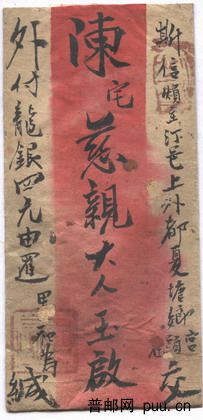 斯信煩至汀邑上外都夏塘鄉宮頭交
陳宅慈親大人玉啟
外付龍銀四元由暹 緘
普邮网 puu.cn